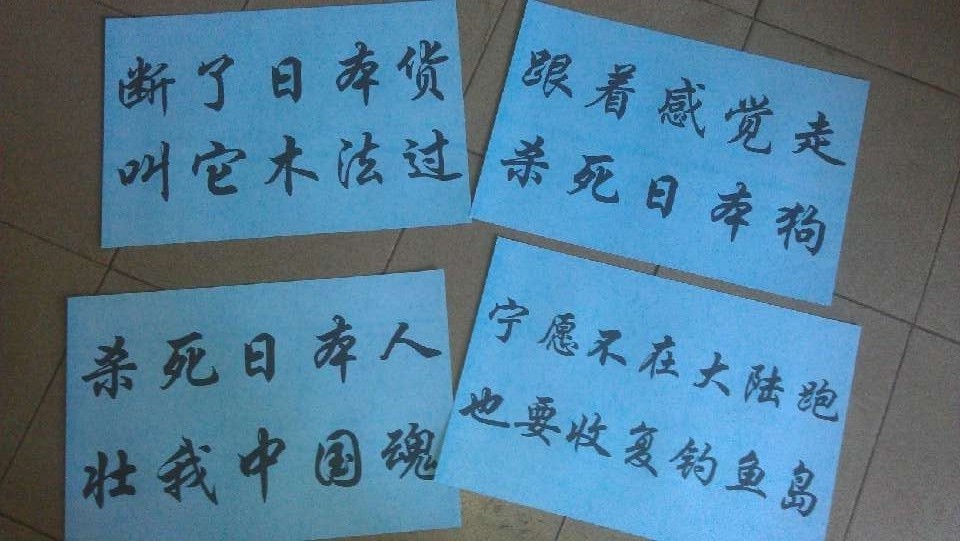 断了日本货
叫它木法过
跟着感觉走
杀死日本狗
杀死日本人
壮我中国魂
宁愿不在大陆跑
也要收复钓鱼岛